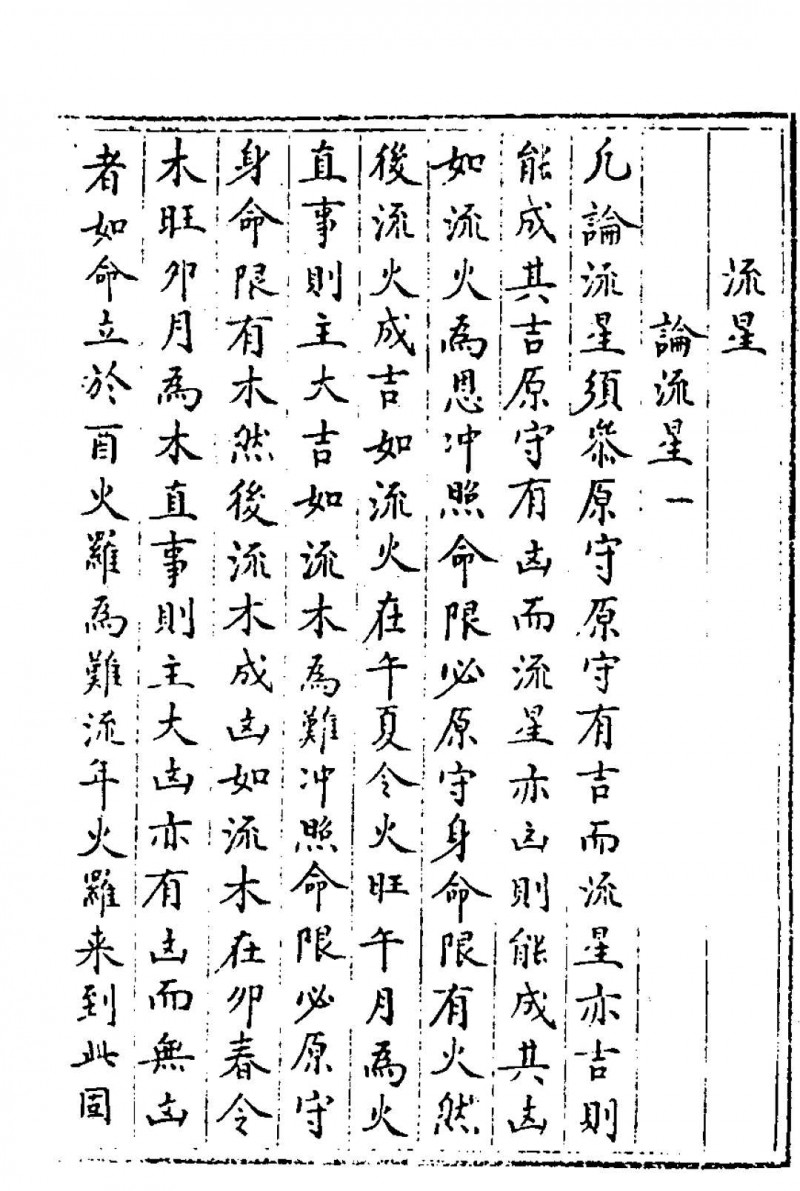 流星
論流星一
凡論流星須叅原守原守有吉而流星亦吉則
能成其吉原守有凶而流星亦凶則能成其凶
如流火為恩冲照命限必原守身命限有火然
後流火成吉如流火在午夏令火旺午月為火
直事則主大吉如流木為難冲照命限必原守
身命限有木然後流木成凶如流木在卯春令
木旺卯月為木直事則主大凶亦有凶而無凶
者如命立於酉火羅為難流年火羅来到此固